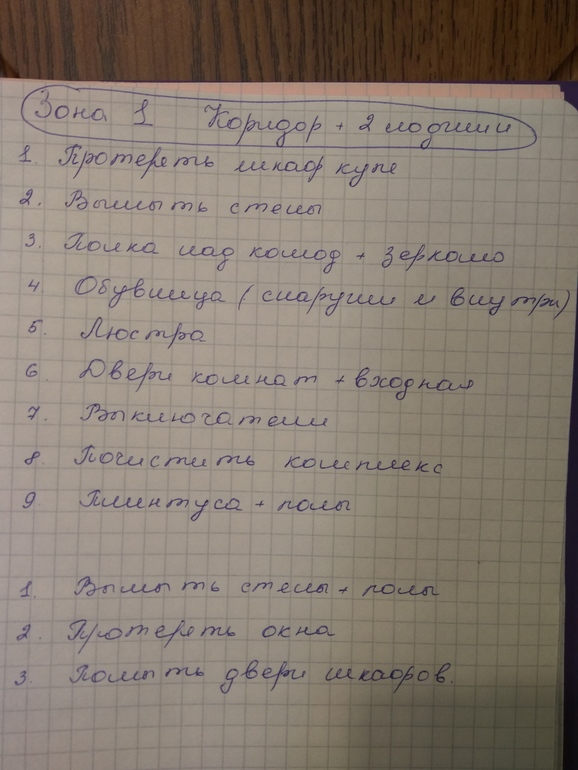 Зона 1 Коридор + 2 лоджии
1. Протереть шкаф купе
2. Вымыть стены
3. Полка над комод + зеркало
4. Обувница (снаружи и внутри)
5. Люстра
6. Двери комнат + входная
7. Выключатели
8. Почистить комплекс
9. Плинтуса + полы
1. Вымыть стены + полы
2. Протереть окна
3. Помыть двери шкафов.